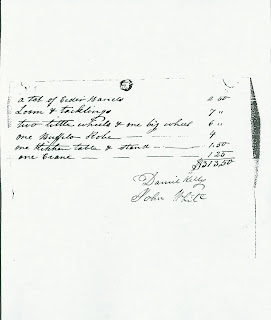 a tol of Ceder Barrels 2.50
Loom & tacklings 7 "
two little wheels & one big wheel 6 "
one Buffelo Robe — 4
one kitchen table & stand — 1.50
one Crane — 1.25
$213.50
Daniel Kelly
John White